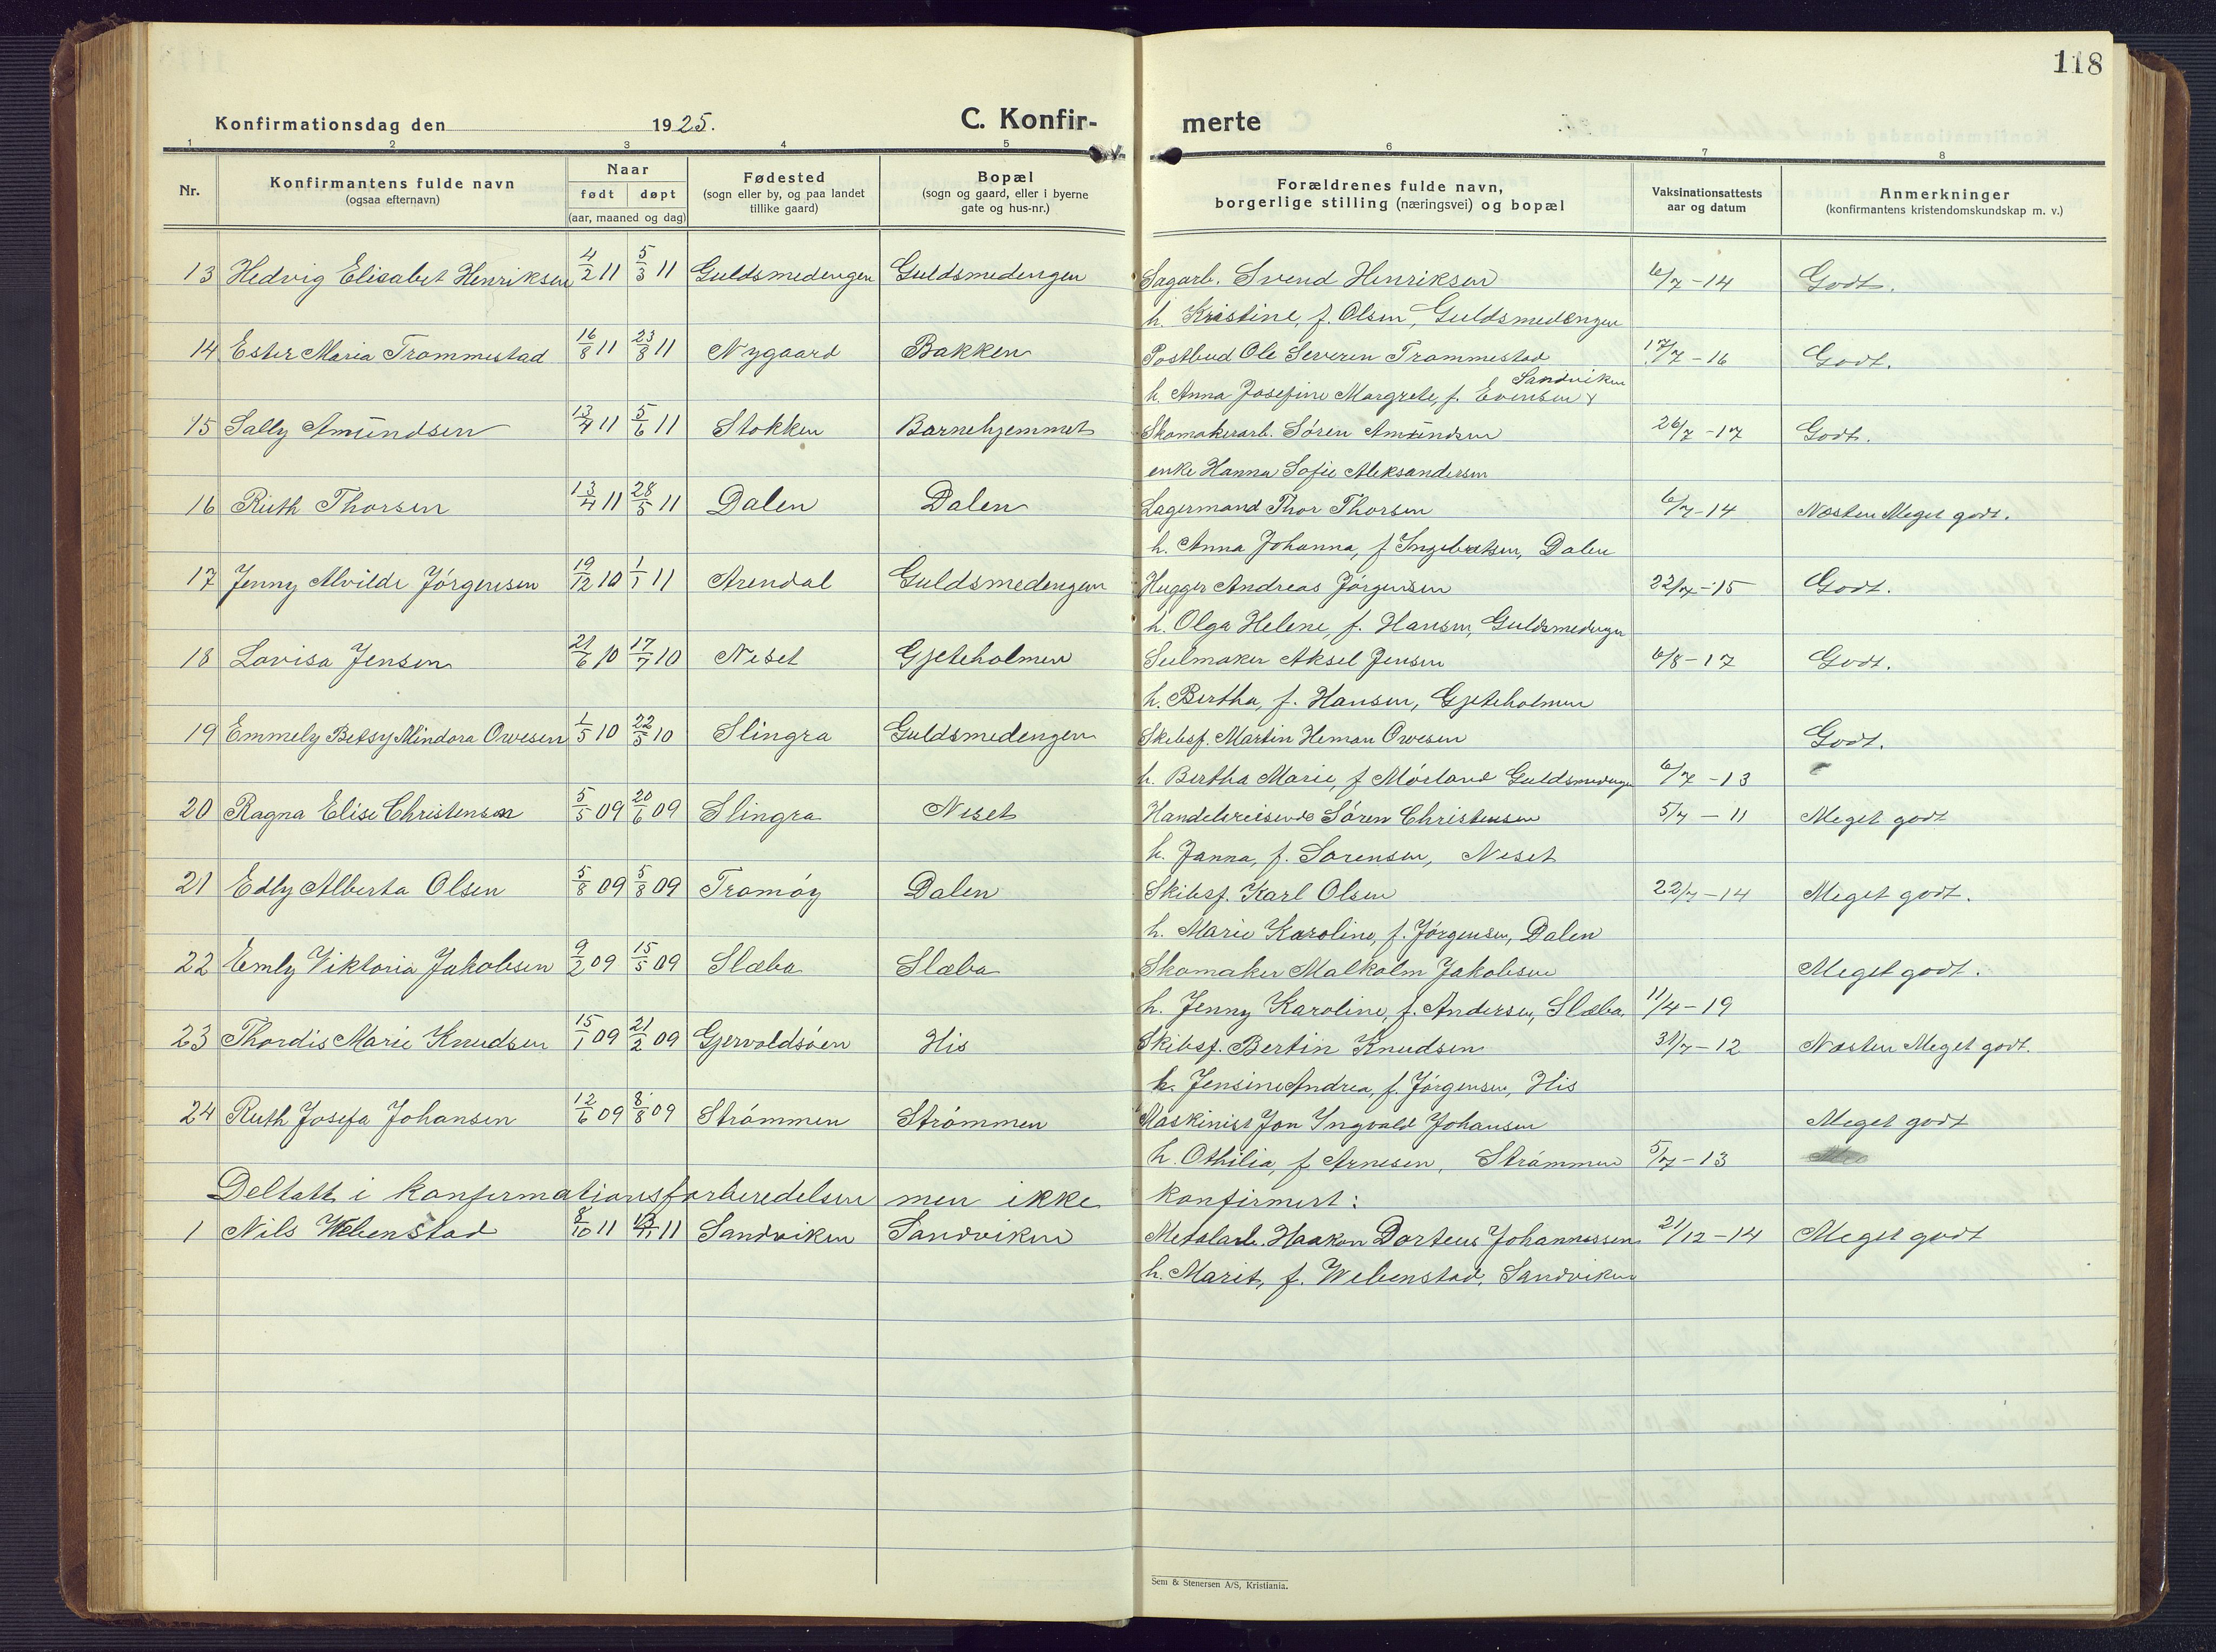 118
Konfirmationsdag den 1925. C. Konfir- merte
1 2 3 4 5 6 7 8
Nr. Konfirmantens fulde navn (ogsaa efternavn) Naar født døpt (aar, maaned og dag) Fødested (sogn eller by, og paa landet tillike gaard) Bopæl (sogn og gaard, eller i byerne gate og hus-nr.) Forældrenes fulde navn, borgerlige stilling (næringsvei) og bopæl Vaksinationsattests aar og datum Anmerkninger (konfirmantens kristendomskundskap m. v.)
13 Hedvig Elisabet Henriksen 4/2 11 5/3 11 Guldsmedengen Guldsmedengen Sagarb. Svend Henriksen 6/7-14 Godt.
h. Kristine, f. Olsen, Guldsmedengen
14 Ester Maria Trommestad 16/8 11 23/8 11 Nygaard Bakken Postbud Ole Severin Trommestad 17/7-16 Godt.
h. Anna Josefine Margrete, f. Evensen Sandviken
15 Sally Amundsen 13/4 11 5/6 11 Stokken Barnehjemmet Skomakerarb. Søren Amundsen 26/7-17 Godt.
enke Hanna Sofie Aleksandersen
16 Ruth Thorsen 13/4 11 28/5 11 Dalen Dalen Lagermand Thor Thorsen 6/7-14 Næsten Meget godt.
h. Anna Johanna, f. Ingebretsen, Dalen
17 Jenny Alvilde Jörgensen 19/12 10 1/1 11 Arendal Guldsmedengen Hugger Andreas Jörgensen 22/7-15 Godt.
h. Olga Helene, f. Hansen, Guldsmedengen
18 Lovisa Jensen 21/6 10 17/7 10 Neset Gjeteholmen Seilmaker Aksel Jensen 6/8-17 Godt.
h. Bertha, f. Hansen, Gjeteholmen
19 Emmely Betsy Mindora Owesen 1/5 10 22/5 10 Slingra Guldsmedengen Skibsf. Martin Heman Owesen Godt.
h. Bertha Marie, f. Mörland Guldsmedengen 6/7-13
20 Ragna Elise Christensen 5/5 09 20/6 09 Slingra Neset Handelsreisende Sören Christensen 5/7-11 Meget godt
h. Janna, f. Sorensen, Neset
21 Edly Alberta Olsen 5/8 09 5/8 09 Tromöy Dalen Skibsf. Karl Olsen 22/7-14 Meget godt.
h. Marie Karoline, f. Jörgensen, Dalen
22 Emly Viktoria Jakobsen 9/2 09 15/5 09 Slæba Slæba Skomaker Malkolm Jakobsen Meget godt.
h. Jenny Karoline, f. Andersen, Slæba. 11/4-19
23 Thordis Marie Knudsen 15/1 09 21/2 09 Gjervoldsöen His Skibsf. Bertin Knudsen 31/7-12 Næsten Meget godt.
h. Jensine Andrea, f. Jörgensen, His
24 Ruth Josefa Johansen 12/6 09 8/8 09 Strömmen Strömmen Maskinist Jon Ingvald Johansen Meget godt
h. Othilia, f. Arnesen, Strömmen 5/7-13
Deltatt i konfirmationsforberedelsen men ikke konfirmert:
1 Nils Webenstad 8/10 11 Sandviken Sandviken Metalarb. Haakon Dorteus Johannessen 21/12-14 Meget godt
h. Marit, f. Webenstad, Sandviken
Sem & Stenersen A/S, Kristiania.